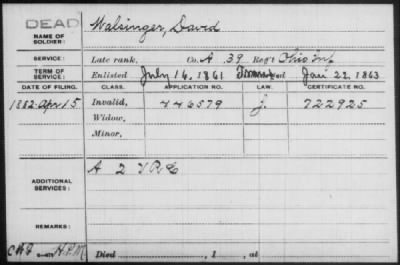 DEAD
NAME OF SOLDIER: Walsinger, David
SERVICE: Late rank, Co. A 39 Reg't Ohio Inf
TERM OF SERVICE: Enlisted July 16, 1861 Jan 22, 1863
DATE OF FILING. CLASS. APPLICATION NO. LAW. CERTIFICATE NO.
1882 Apr 15 Invalid, 446579 J. 722925
Widow,
Minor,
ADDITIONAL SERVICES: A 2 V R C
REMARKS:
H.P.M
Died , 1 , at